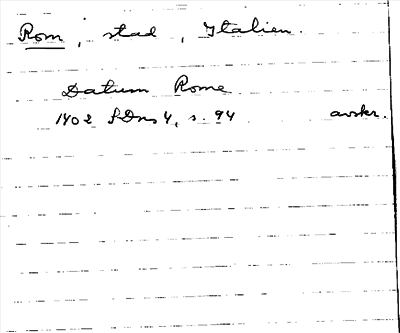 Rom, stad, Italien.
Datum Rome
1402 SDns 4, s. 94 avskr.